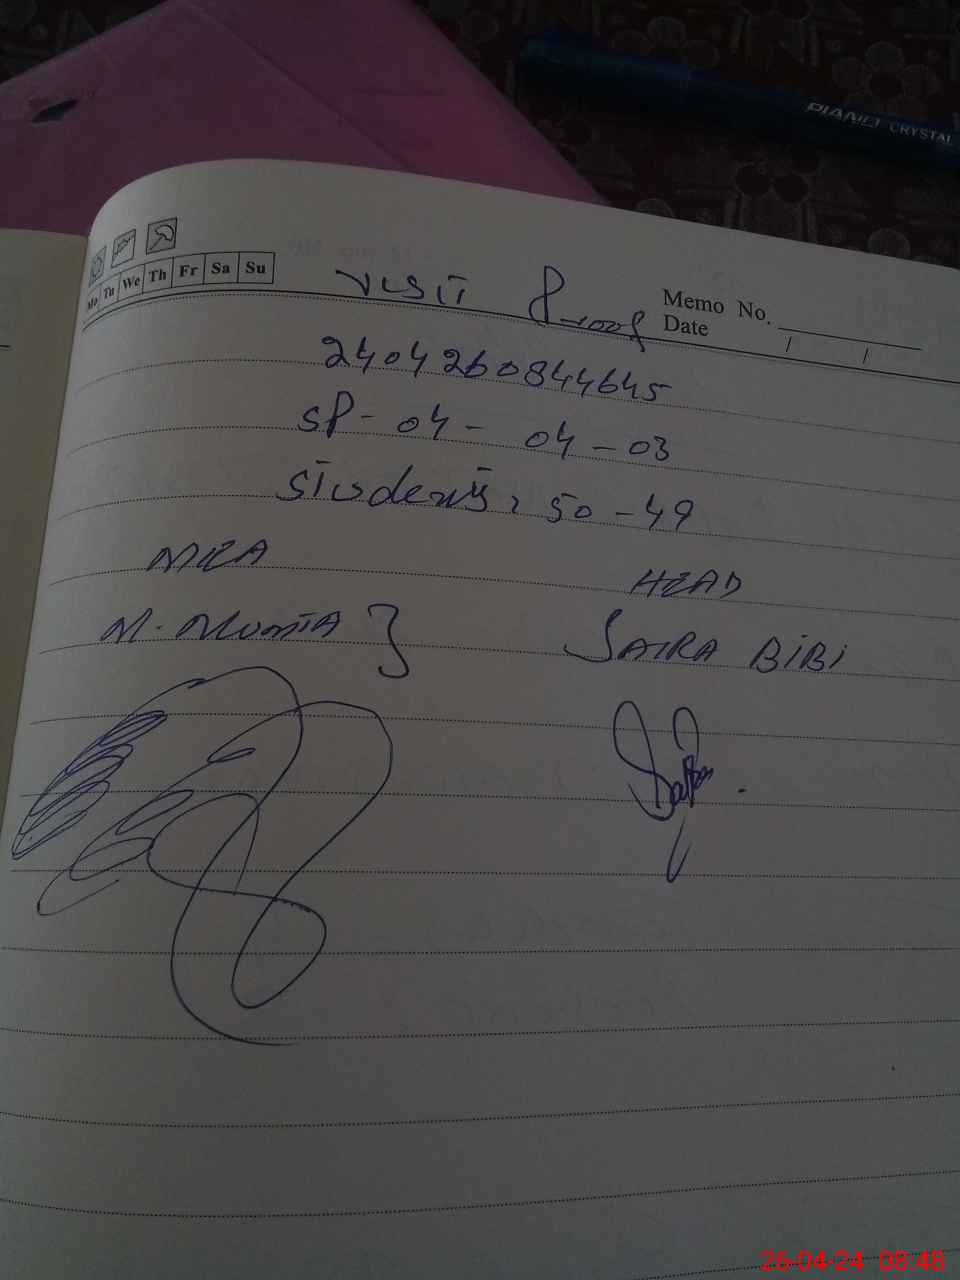 PIANO CRYSTAL
Mo Tu We Th Fr Sa Su
Memo No.
Date / /
VISIT Proof
2404260844645
SP- 04 - 04 - 03
Students, 50 - 49
MEA HEAD
M. MUMTAZ SAIRA BiBi
26-04-24 08:48